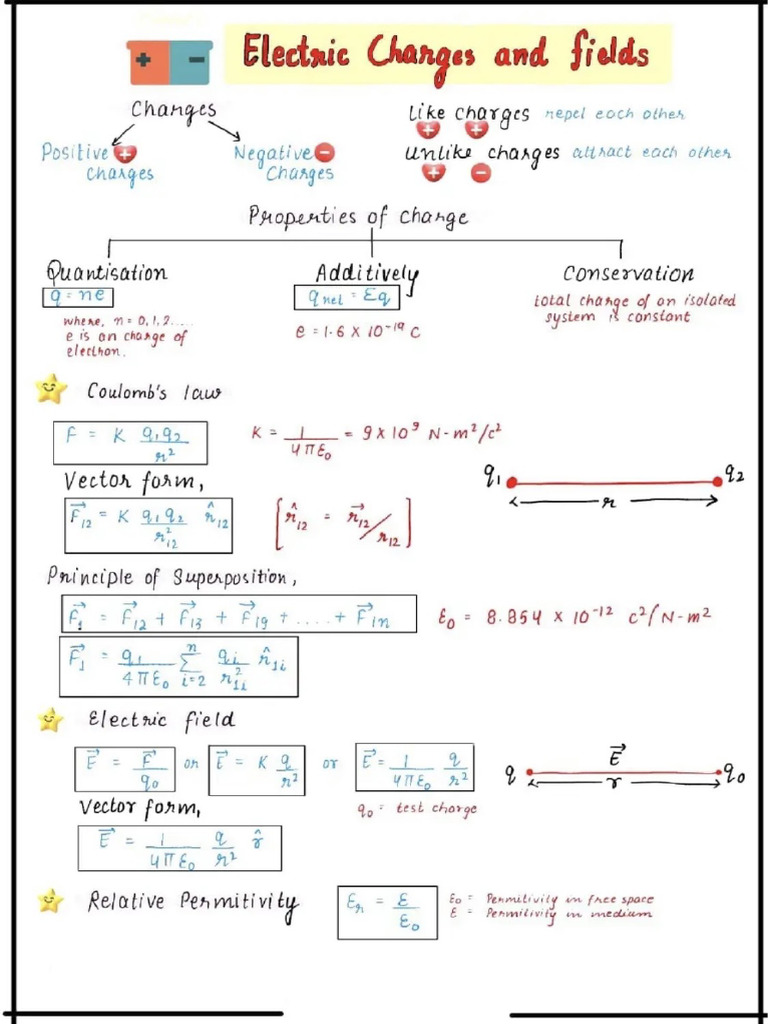 + -
Electric Charges and fields
Charges
Positive + Charges
Negative - Charges
Like charges repel each other
+ +
Unlike charges attract each other
+ -
Properties of charge
Quantisation
q = ne
where, n = 0, 1, 2.....
e is an charge of
electron.
Additively
q net = Σq
e = 1.6 × 10⁻¹⁹ C
Conservation
total charge of an isolated
system is constant
Coulomb's law
F = K q₁q₂ / r²
K = 1 / 4πε₀ = 9 × 10⁹ N-m²/c²
q₁ q₂
r
Vector form,
F⃗₁₂ = K q₁ q₂ / r²₁₂ r̂₁₂
[r̂₁₂ = r⃗₁₂ / r₁₂]
Principle of Superposition,
F⃗₁ = F⃗₁₂ + F⃗₁₃ + F⃗₁₉ + .... + F⃗₁ₙ
ε₀ = 8.854 × 10⁻¹² c²/N-m²
F⃗₁ = q₁ / 4πε₀ Σ n i=2 qᵢ / r²₁ᵢ r̂₁ᵢ
Electric field
E⃗ = F⃗ / q₀ or E⃗ = K q / r² or E⃗ = 1 / 4πε₀ q / r²
q₀ = test charge
E⃗
q q₀
r
Vector form,
E⃗ = 1 / 4πε₀ q / r² r̂
Relative Permitivity
εr = ε / ε₀
ε₀ = Permitivity in free space
ε = Permitivity in medium